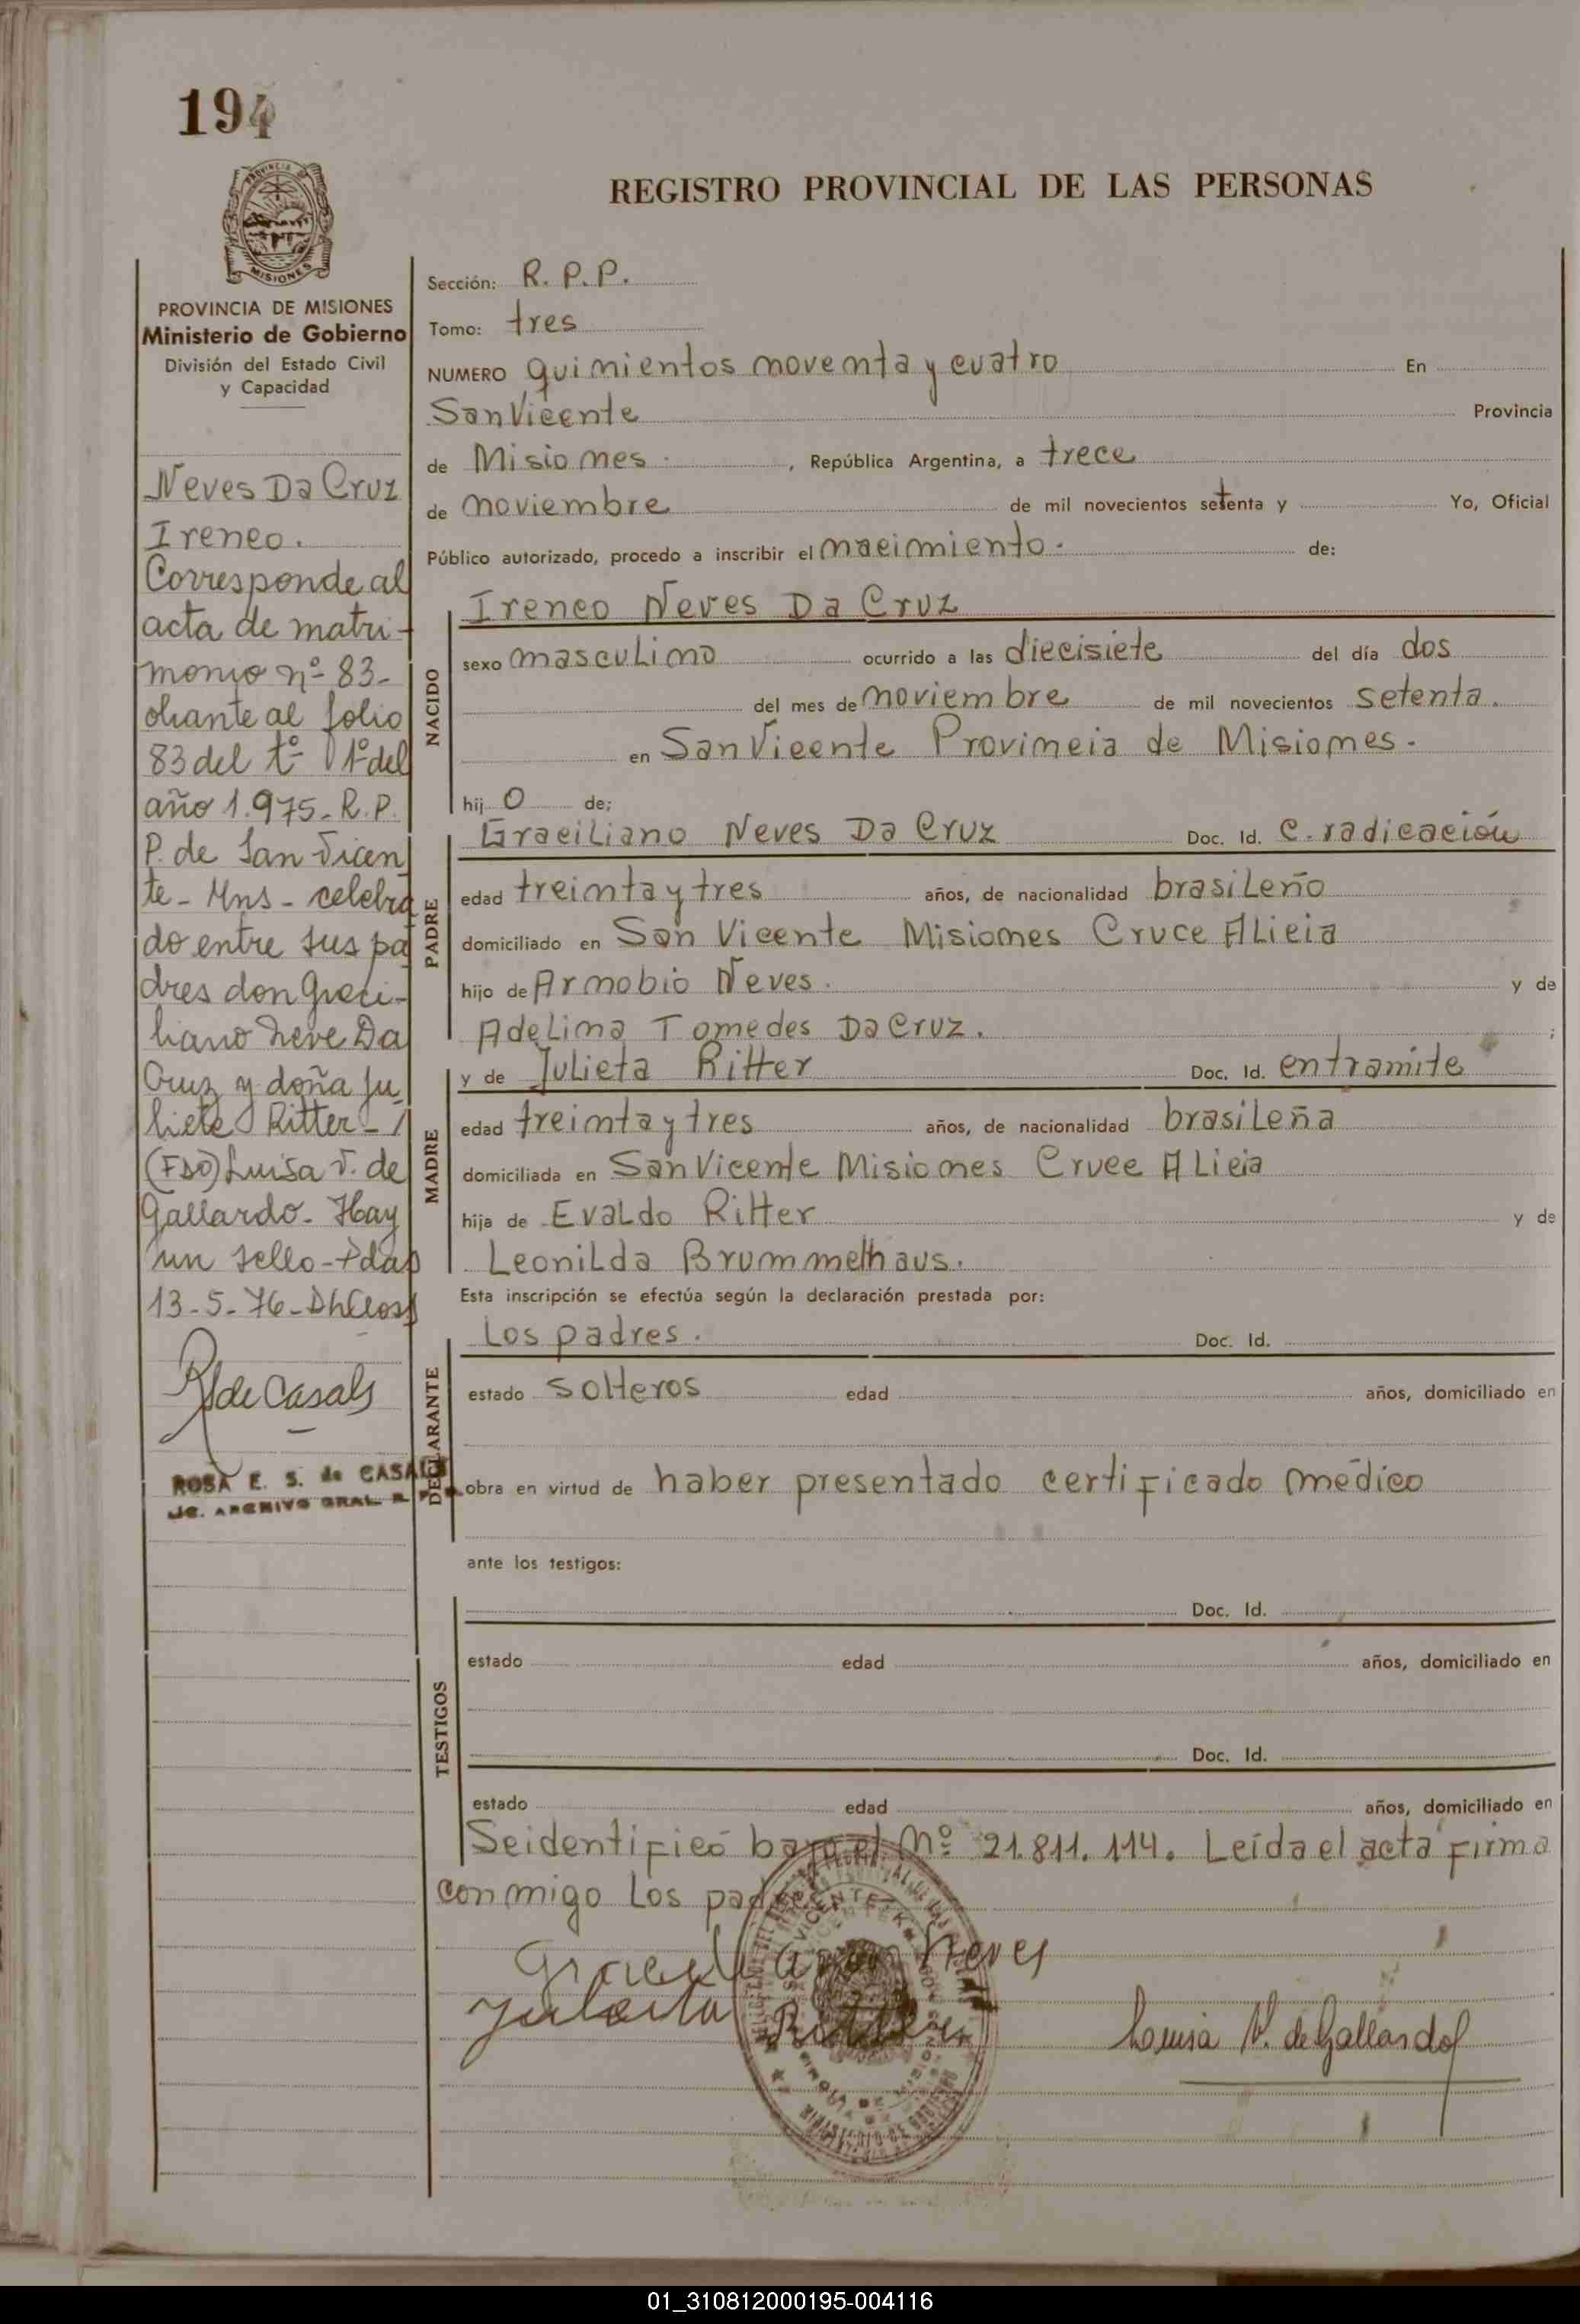 194
PROVINCIA DE MISIONES
Ministerio de Gobierno
División del Estado Civil
y Capacidad
Neves Da Cruz
Ireneo.
Corresponde al
acta de matri-
monio nº 83-
obrante al folio
83 del tº 1º del
año 1.975.- R.P.
P. de San Vicen
te - Mns - celebra
do entre sus pa
dres don Graci-
liano Neve Da
Cruz y doña Ju
lieta Ritter -
(FDO) Luisa V. de
Gallardo - Hay
un sello - Pdas
13-5-76 -
R de Casals
ROSA E. S. de CASALS
ARCHIVO GRAL. R. P.
REGISTRO PROVINCIAL DE LAS PERSONAS
Sección: R. P. P.
Tomo: tres
NUMERO quinientos noventa y cuatro En
San Vicente Provincia
de Misiones. , República Argentina, a trece
de noviembre de mil novecientos setenta y Yo, Oficial
Público autorizado, procedo a inscribir el nacimiento. de:
NACIDO
Ireneo Neves Da Cruz
sexo masculino ocurrido a las diecisiete del día dos
del mes de noviembre de mil novecientos setenta.
en San Vicente Provincia de Misiones.
hij o de;
PADRE
Graciliano Neves Da Cruz Doc. Id. C. radicación
edad treinta y tres años, de nacionalidad brasileño
domiciliado en San Vicente Misiones Cruce Alicia
hijo de Arnobio Neves. y de
Adelina Tomedes Da Cruz. ;
MADRE
y de Julieta Ritter Doc. Id. en tramite
edad treinta y tres años, de nacionalidad brasileña
domiciliada en San Vicente Misiones Cruce Alicia
hija de Evaldo Ritter y de
Leonilda Brummelhaus.
Esta inscripción se efectúa según la declaración prestada por:
DECLARANTE
Los padres. Doc. Id.
estado solteros edad años, domiciliado en
obra en virtud de haber presentado certificado médico
ante los testigos:
TESTIGOS
Doc. Id.
estado edad años, domiciliado en
Doc. Id.
estado edad años, domiciliado en
Se identificó bajo el Nº 21.811.114. Leída el acta firma
conmigo los padres
Graciliano Neves
Julieta Ritter
Luisa V. de Gallardo
01_310812000195-004116